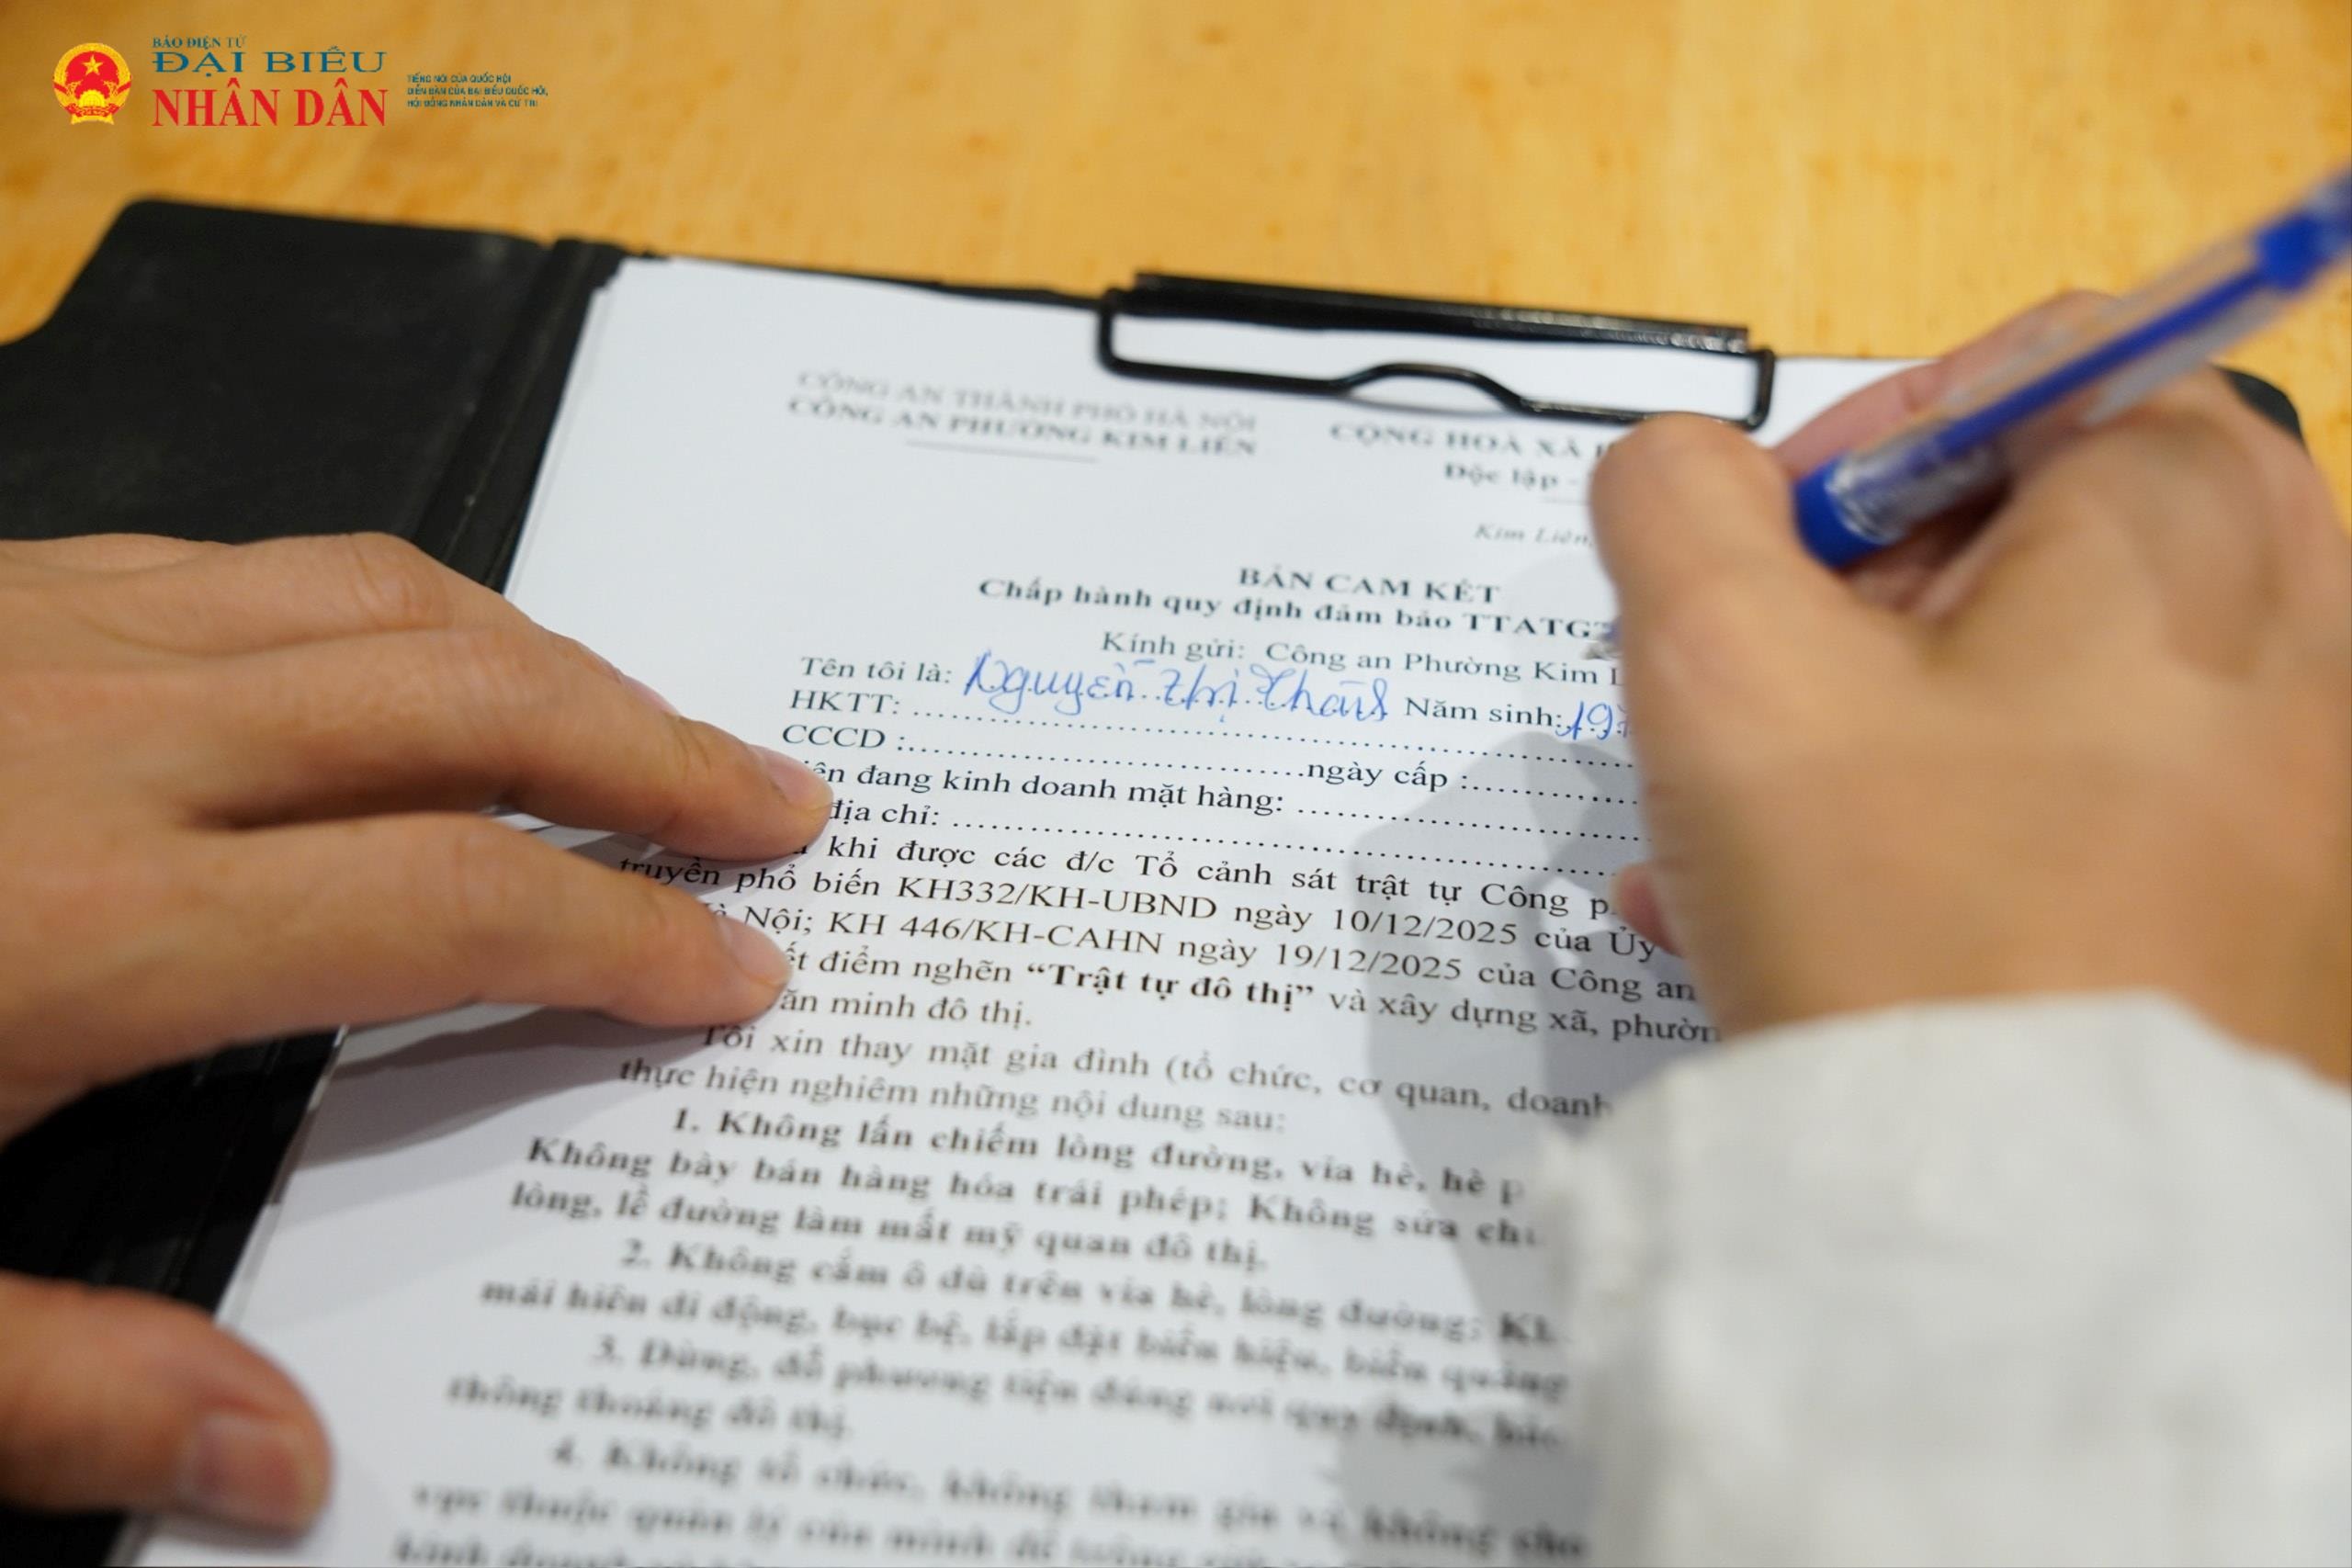 BÁO ĐIỆN TỬ
ĐẠI BIỂU
NHÂN DÂN
TIẾNG NÓI CỦA QUỐC HỘI
DIỄN ĐÀN CỦA ĐẠI BIỂU QUỐC HỘI,
HỘI ĐỒNG NHÂN DÂN VÀ CỬ TRI
CÔNG AN THÀNH PHỐ HÀ NỘI
CÔNG AN PHƯỜNG KIM LIÊN
CỘNG HOÀ XÃ
Độc lập -
Kim Liên,
BẢN CAM KẾT
Chấp hành quy định đảm bảo TTATG
Kính gửi: Công an Phường Kim
Tên tôi là: Nguyễn Thị Năm sinh: 197
HKTT: ........
CCCD :........ngày cấp :........
đang kinh doanh mặt hàng: ........
địa chỉ: ........
khi được các đ/c Tổ cảnh sát trật tự Công
truyền phổ biến KH332/KH-UBND ngày 10/12/2025 của Ủy
Nội; KH 446/KH-CAHN ngày 19/12/2025 của Công an
điểm nghẽn “Trật tự đô thị” và xây dựng xã, phườn
minh đô thị.
Tôi xin thay mặt gia đình (tổ chức, cơ quan, doanh
thực hiện nghiêm những nội dung sau:
1. Không lấn chiếm lòng đường, vỉa hè, hè
Không bày bán hàng hóa trái phép; Không sửa
lòng, lề đường làm mất mỹ quan đô thị.
2. Không cắm ô dù trên vỉa hè, lòng đường;
mái hiên di động, bục bệ, lắp đặt biển hiệu, biển quảng
3. Dừng, đỗ phương tiện đúng nơi quy định,
thông thoáng đô thị.
4. Không tổ chức, không tham gia và không cho
vực thuộc quản lý của mình để
kinh doanh